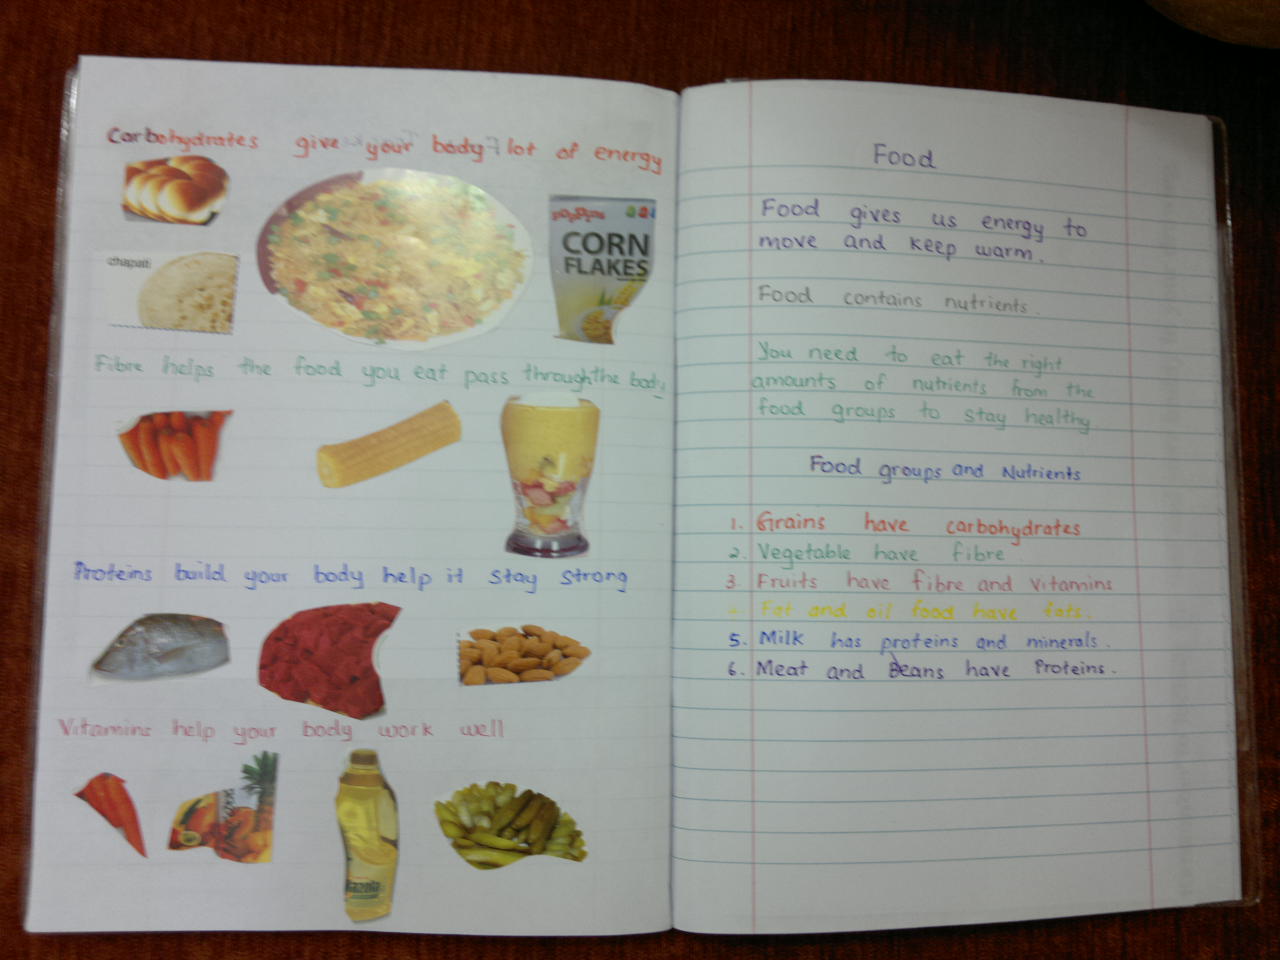 Carbohydrates give your body lot of energy
poppins
CORN
FLAKES
chapati
Fibre helps the food you eat pass through the body
Proteins build your body help it stay strong
Vitamins help your body work well
Food
Food gives us energy to
move and keep warm.
Food contains nutrients.
You need to eat the right
amounts of nutrients from the
food groups to stay healthy
Food groups and Nutrients
1. Grains have carbohydrates
2. Vegetable have fibre
3. Fruits have fibre and vitamins
4. Fat and oil food have fats.
5. Milk has proteins and minerals.
6. Meat and Beans have Proteins.